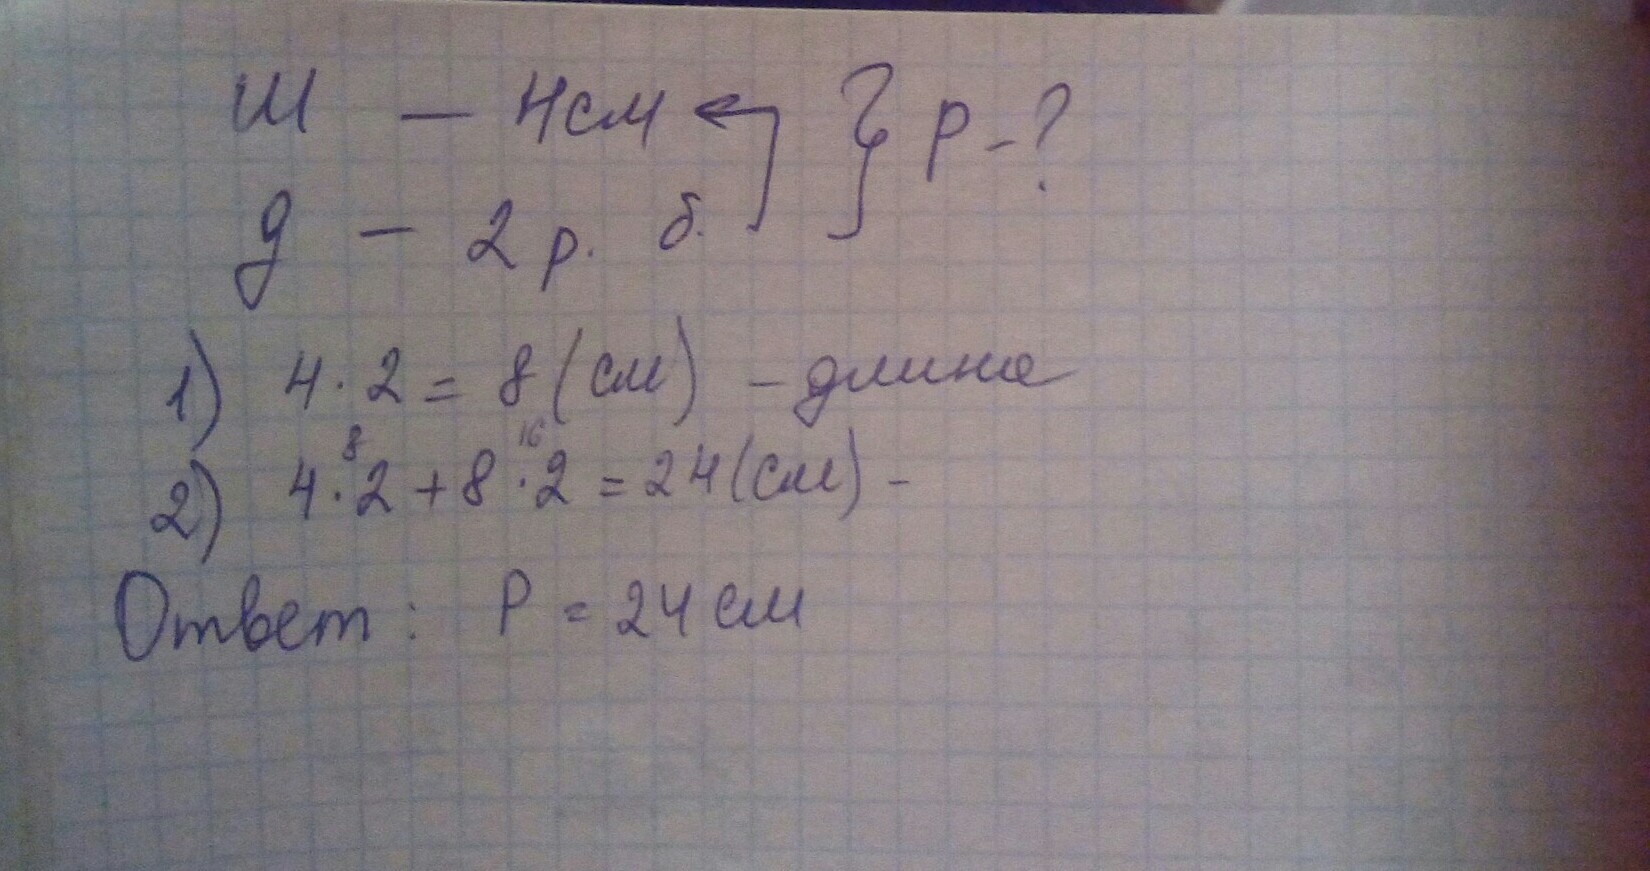 Ш — 4см } P - ?
д — 2 р. б.
1) 4 · 2 = 8 (см) - длина
8 16
2) 4 · 2 + 8 · 2 = 24 (см) -
Ответ : P = 24 см